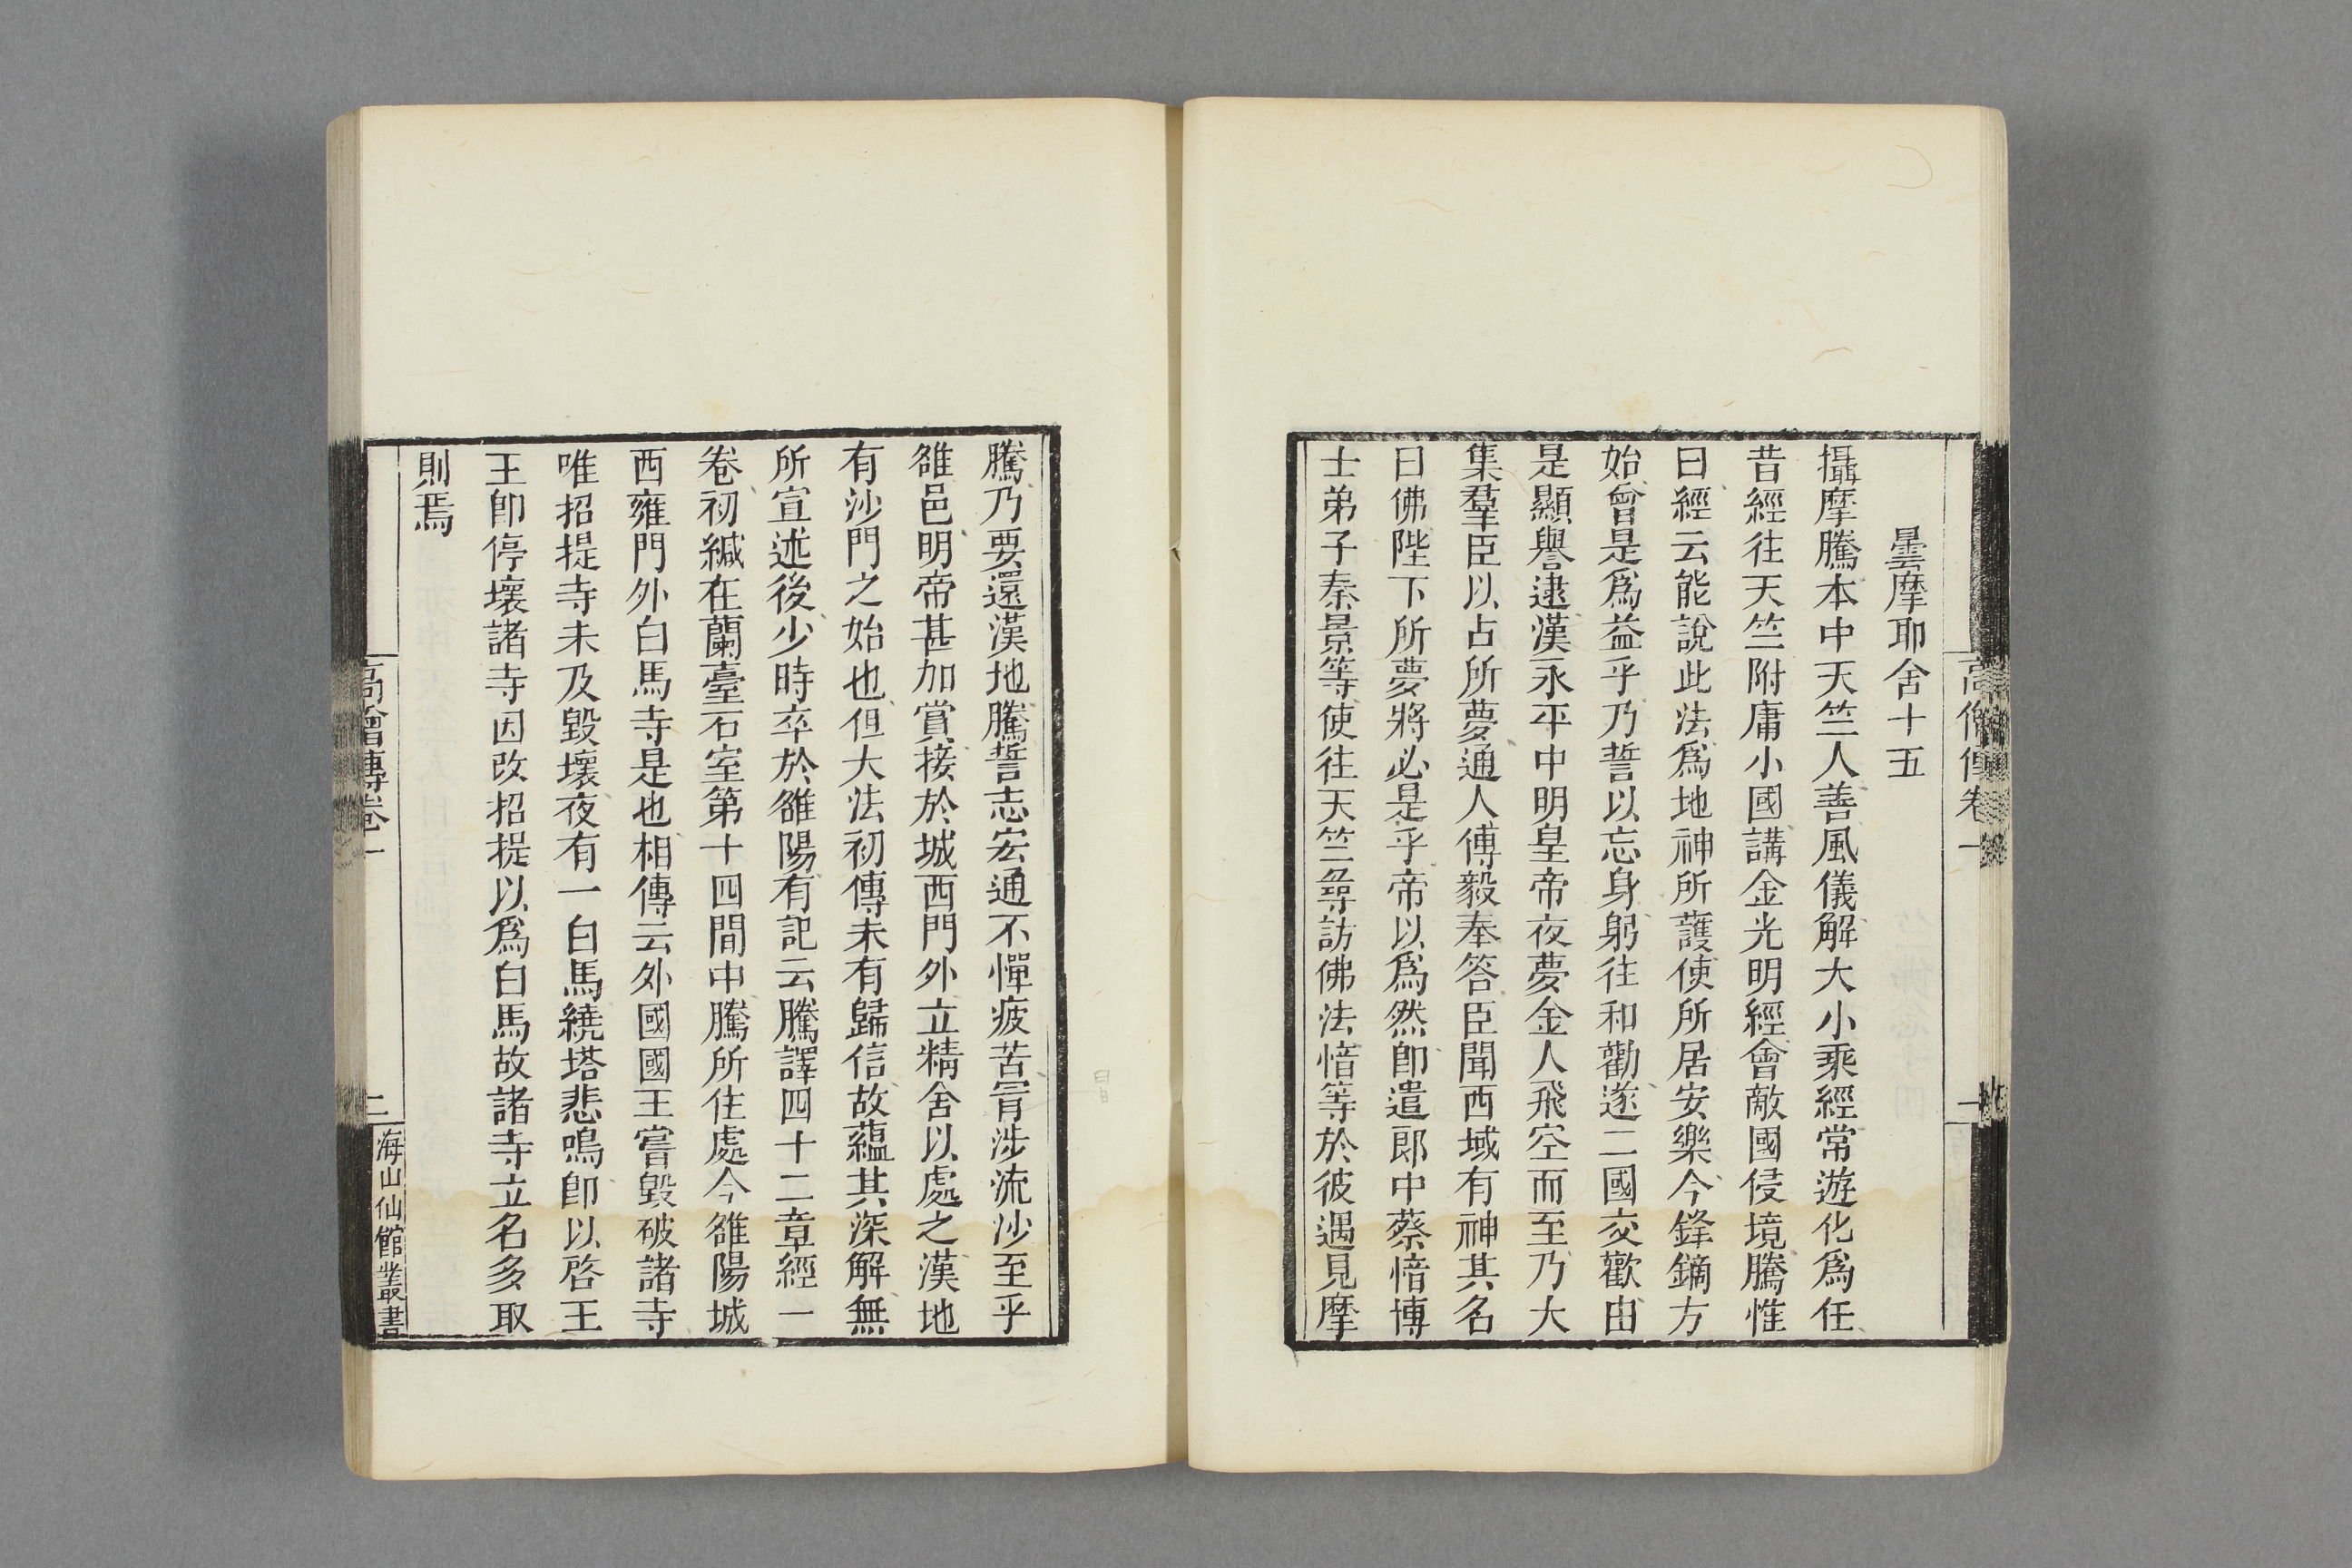 高僧傳卷一
一
曇摩耶舍十五
攝摩騰本中天竺人善風儀解大小乘經常遊化爲任
昔經往天竺附庸小國講金光明經會敵國侵境騰惟
曰經云能說此法爲地神所護使所居安樂今鋒鏑方
始曾是爲益乎乃誓以忘身躬往和勸遂二國交歡由
是顯譽逮漢永平中明皇帝夜夢金人飛空而至乃大
集羣臣以占所夢通人傅毅奉答臣聞西域有神其名
曰佛陛下所夢將必是乎帝以爲然卽遣郎中蔡愔博
士弟子秦景等使往天竺尋訪佛法愔等於彼遇見摩
騰乃要還漢地騰誓志宏通不憚疲苦冐涉流沙至乎
雒邑明帝甚加賞接於城西門外立精舍以處之漢地
有沙門之始也但大法初傳未有歸信故蘊其深解無
所宣述後少時卒於雒陽有記云騰譯四十二章經一
卷初緘在蘭臺石室第十四間中騰所住處今雒陽城
西雍門外白馬寺是也相傳云外國國王嘗毀破諸寺
唯招提寺未及毀壞夜有一白馬繞塔悲鳴卽以啓王
王卽停壞諸寺因改招提以爲白馬故諸寺立名多取
則焉
高僧傳卷一
二
海山仙館叢書